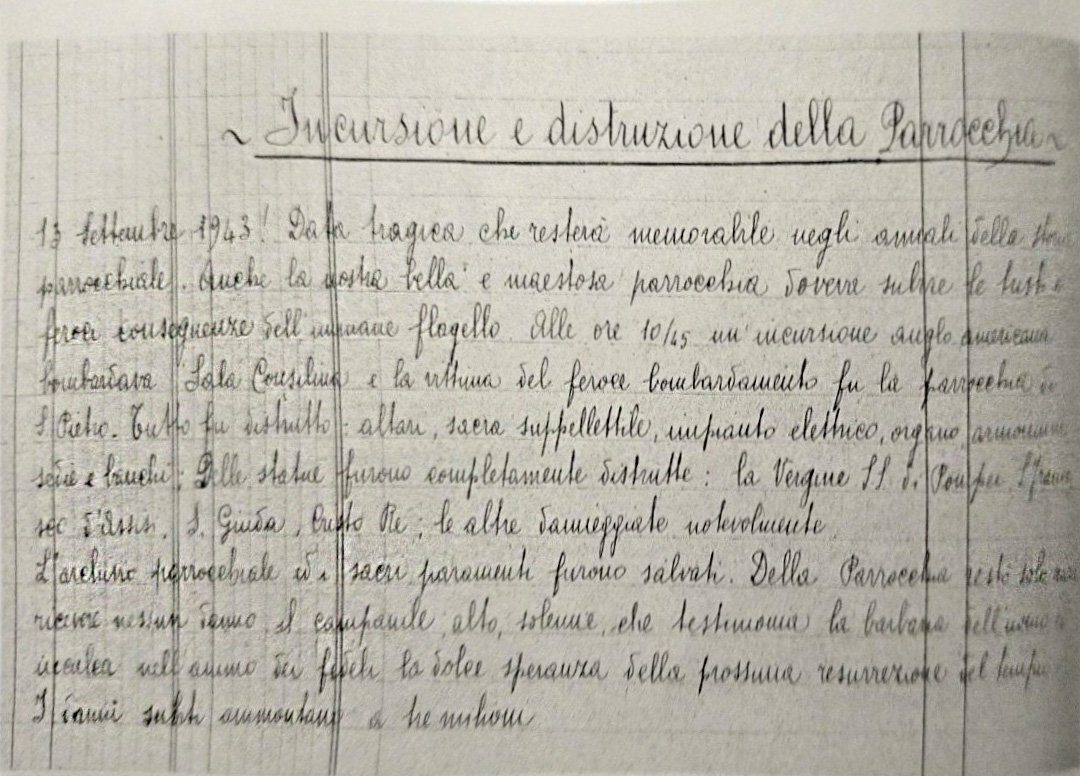 ~ Incursione e distruzione della Parrocchia ~
13 Settembre 1943! Data tragica che resterà memorabile negli annali della storia
parrocchiale. Anche la nostra bella e maestosa parrocchia doveva subire le tristi e
feroci conseguenze dell'immane flagello. Alle ore 10/45 un'incursione anglo americana
bombardava Sala Consilina e la vittima del feroce bombardamento fu la parrocchia di
S. Pietro. Tutto fu distrutto: altari, sacra suppellettile, impianto elettrico, organo, armonium
sedie e banchi; Delle statue furono completamente distrutte: la Vergine SS. di Pompei, S. Fran
sco d'Assisi, S. Giuda, Cristo Re; le altre danneggiate notevolmente.
L'archivio parrocchiale ed i sacri paramenti furono salvati. Della Parrocchia restò solo
ricevere nessun danno il campanile, alto, solenne, che testimonia la barbarie dell'uomo e
inculca nell'animo dei fedeli la dolce speranza della prossima resurrezione del tempio
I danni subiti ammontano a tre milioni